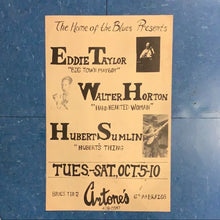 The Home of the Blues Presents
EDDIE TAYLOR
"BIG TOWN PLAYBOY"
WALTER HORTON
"HARD HEARTED WOMAN"
HUBERT SUMLIN
"HUBERT'S THING"
TUES-SAT, OCT. 5-10
Antone's